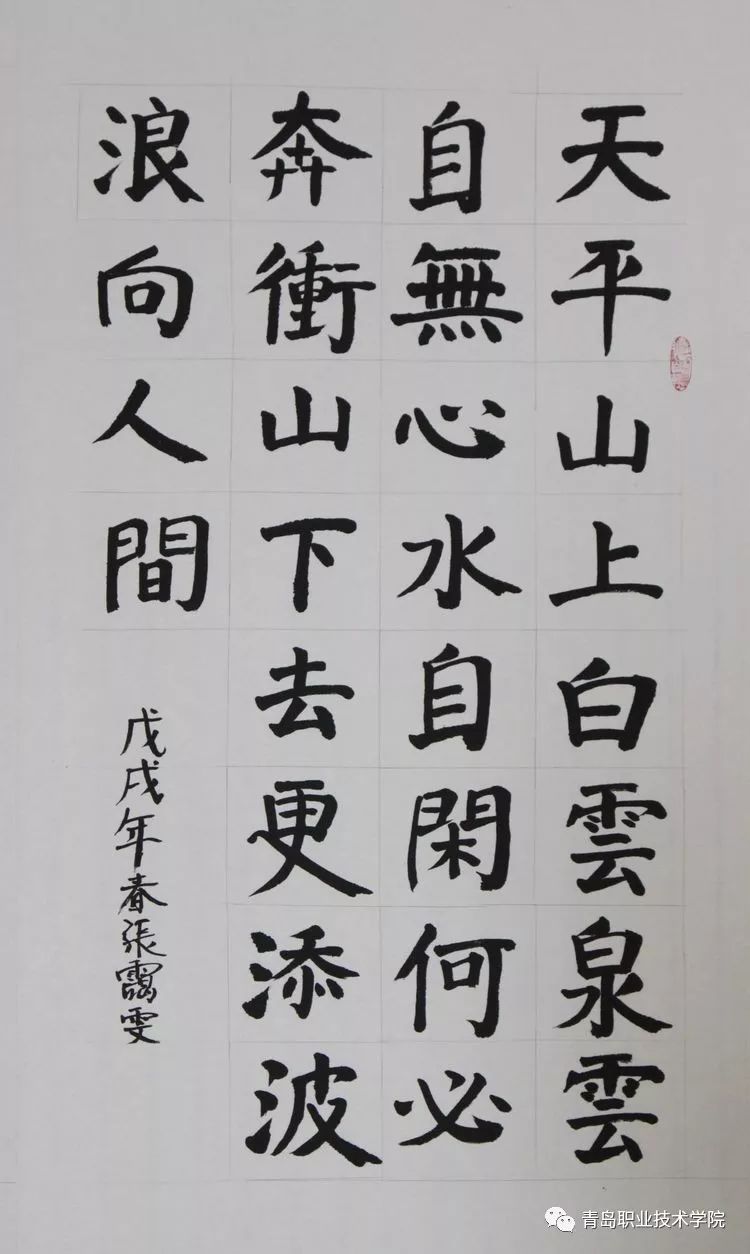 天平山上白雲泉雲
自無心水自閑何必
奔衝山下去更添波
浪向人間
戊戌年春張靄雯
青岛职业技术学院